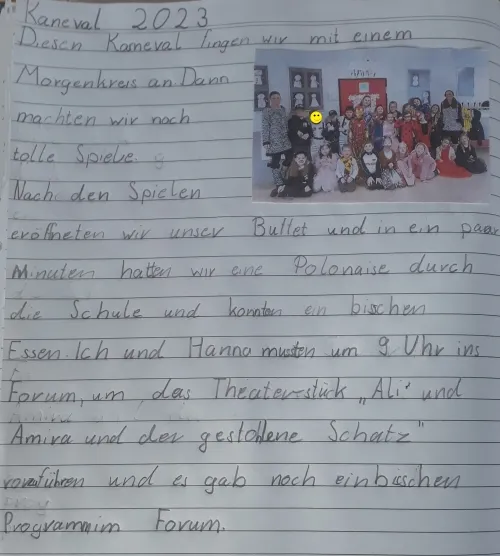 Kaneval 2023
Diesen Kaneval fingen wir mit einem
Morgenkreis an. Dann
machten wir noch
tolle Spiele.
Nach den Spielen
eröffneten wir unser Buffet und in ein paar
Minuten hatten wir eine Polonaise durch
die Schule und konnten ein bisschen
Essen. Ich und Hanna musten um 9 Uhr ins
Forum, um das Theaterstück „Ali" und
Amira und der gestohlene Schatz"
vorzuführen und es gab noch ein bisschen
Programm im Forum.